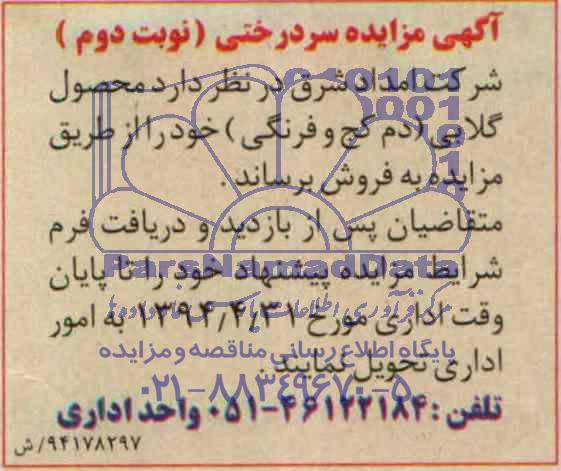 آگهی مزایده سردرختی (نوبت دوم)
شرکت امداد شرق در نظر دارد محصول
گلابی (دم کج و فرنگی) خود را از طریق
مزایده به فروش برساند.
متقاضیان پس از بازدید و دریافت فرم
شرایط مزایده پیشنهاد خود را تا پایان
وقت اداری مورخ ۱۳۹۴/۴/۳۱ به امور
اداری تحویل نمایند.
تلفن: ۴۶۱۲۲۱۸۴-۰۵۱ واحد اداری
۹۴۱۷۸۲۹۷/ش
ParsNamadData
پایگاه اطلاع رسانی مناقصه و مزایده
۰۲۱-۸۸۳۴۹۶۷۰-۵